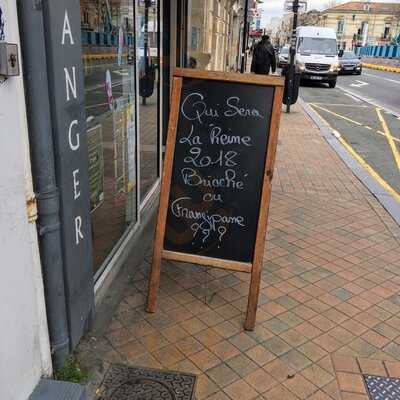 ANGER
Qui Sera
La Reine
2018
Brioché
ou
Frangipane
???